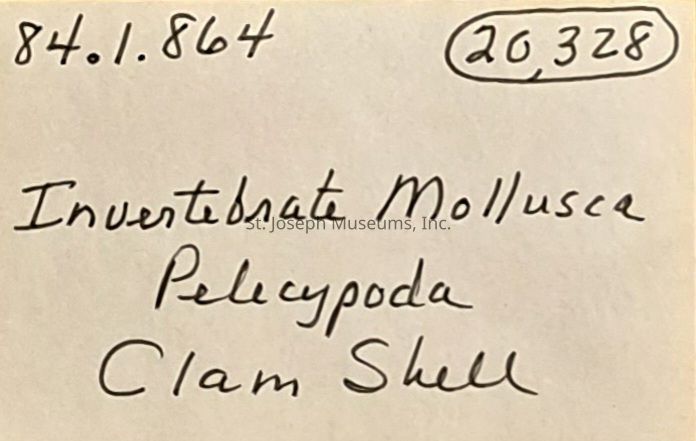 84.1.864 20,328
Invertebrate Mollusca
St. Joseph Museums, Inc.
Pelecypoda
Clam Shell